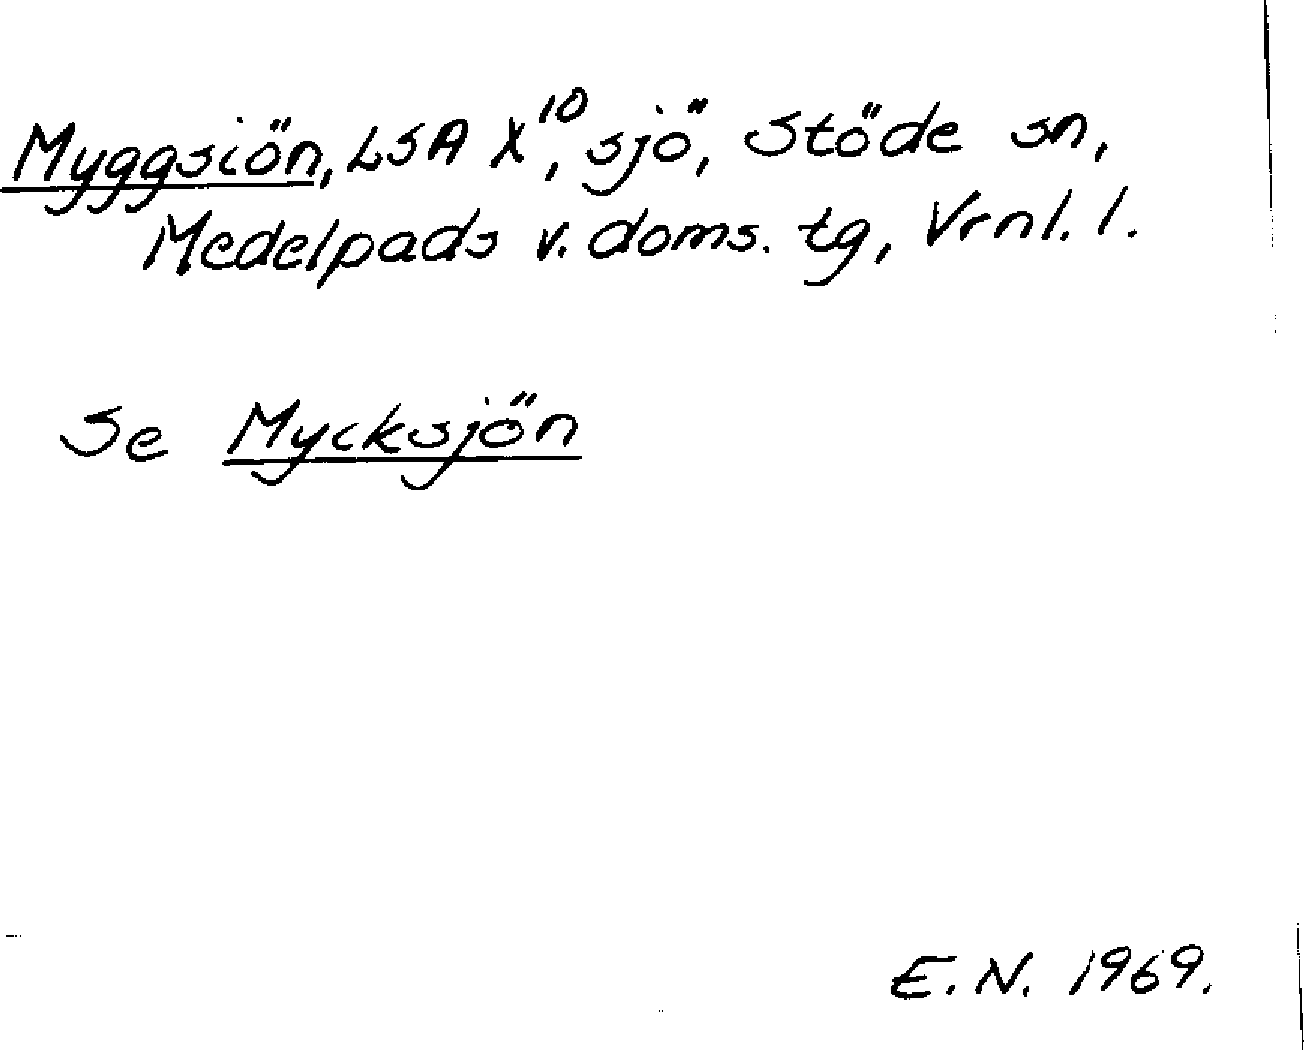 Myggsiön, LSA X¹⁰, sjö, Stöde sn,
Medelpads v. doms. tg, Vrnl. l.
Se Mycksjön
E.N. 1969.